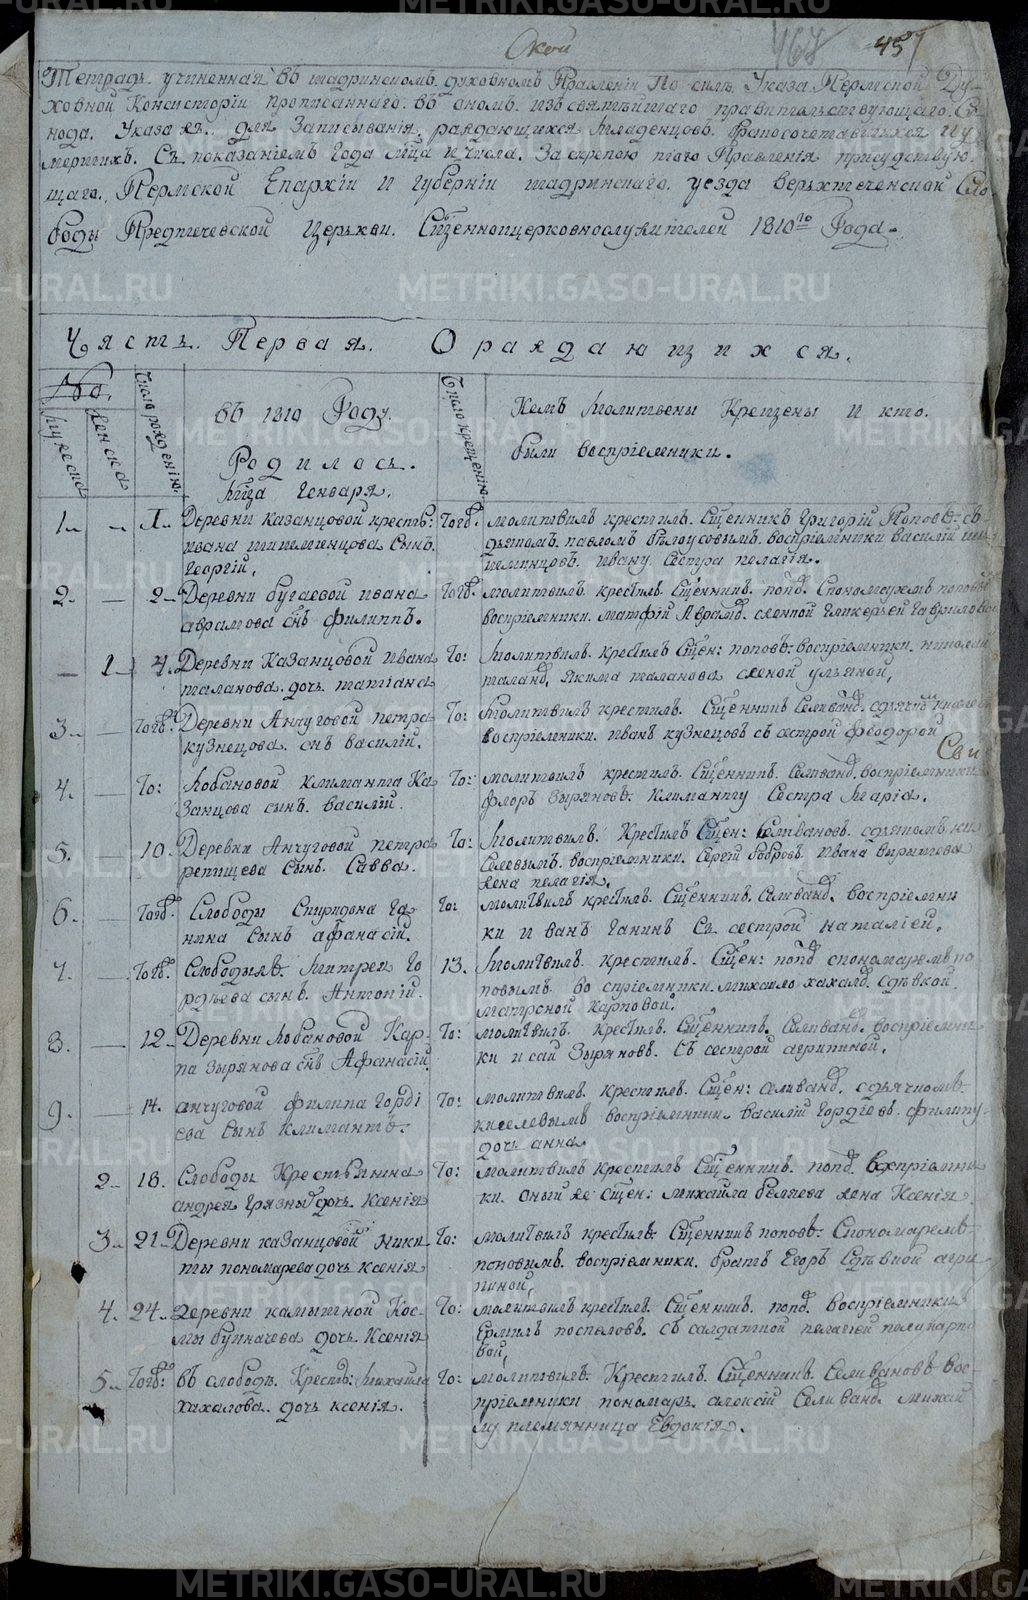 Окой
457
Тетрадь учиненная въ шадринскомъ духовномъ Правленіи По силѣ Указа Пермской Ду-
ховной Консисторіи прописаннаго въ ономъ изъ святѣйшаго правительствующаго Си
нода Указа ея для Записыванія раждающихся младенцовъ бракосочетавшихся и у
мершихъ. Съ показаніемъ Года мца и числа. За скрепою того Правленія присудствую
щаго. Пермской Епархіи и губерніи шадринскаго уезда верьхтеченской Сло
боды Предтичевской Церькви. Сщеннопцерковнослужителей 1810го Года.
Часть Первая. О раждающихся.
№.
мужеска
женска
Число рожденію.
Въ 1810 Году.
Родилось.
мца Генваря.
Число крещенію.
Кемъ молитвены Крещены и кто.
были воспріемники.
1. – 1. Деревни казанцовой кресть:
ивана шипенцова Сынъ
Георгій.
Тогож. молитвилъ крестилъ Сщенникъ григорій Поповъ съ
дьячкомъ павломъ белоусовымъ воспріемники василій
ивану сестра пелагія.
2. – 2. Деревни бугаевой ивана
аврамова снъ филиппъ.
Тогож. молитвилъ крестилъ Сщенникъ попов. Спономаремъ поповымъ
воспріемники матфій Аврамов. сженкой гликерьей гавриловой
– 1 4. Деревни Казанцовой ивана
таланова дочь татіана
То: молитвилъ крестилъ Сщен: поповъ воспріемники николай
таланов. якима таланова сженой ульяной,
3. – Тогож. Деревни Анчуговой петра
кузнецова снъ василій.
То: молитвилъ крестилъ Сщенникъ Селиванов. сдьячкомъ
воспріемники иванъ кузнецовъ съ сестрой феодорой
4. – То: Лобановой климанта Ка
занцова сынъ василій
То: молитвилъ крестилъ Сщенникъ Селиванов. воспріемники
флоръ Зыряновъ. климанту сестра марія.
5. – 10. Деревни Анчуговой петра
репищева сынъ Савва.
То: молитвилъ. Крестилъ Сщен: Селивановъ сдьячкомъ ки
селевымъ воспріемники Сергій бобровъ. ивана
жена пелагія.
6. – Тогож. Слободы Спиридона га
нина Сынъ афанасій.
То: молитвилъ крестилъ Сщенникъ Селиванов. воспріемни
ки иванъ ганинъ Съ сестрой наталіей.
7. – Тогож. Слободы митрея го
рдѣева сынъ Антоній.
13. молитвилъ крестилъ Сщен: попов спономаремъ по
повымъ воспріемники михаило хахалов сдѣвкой
матрсной карповой.
8. – 12. Деревни Лобановой Кар-
па Зырянова снъ Афанасій.
То: молитвилъ крестилъ Сщенникъ Селиванов. воспріемни
ки исай Зыряновъ. съ сестрой агрипиной.
9. – 14. анчуговой филипа горді
ева сынъ климантъ.
То: молитвилъ крестилъ Сщен: селиванов. сдьячкомъ
киселевымъ воспріемники василій гордіевъ. филипу
дочь анна
2. 18. Слободы Крестьянина
андрея грязныхъ дочь Ксенія
То: молитвилъ крестилъ Сщенникъ попов. воспріемни
ки оный же Сщен: михаила беляева жена Ксенія
3. 21. Деревни казанцовой ники
ты пономарева дочь ксенія
То: молитвилъ крестилъ Сщенникъ поповъ. Спономаремъ
поповымъ. воспріемники братъ Егоръ Сдѣвкой агри
пиной,
4. 24. деревни камышной Кос-
мы букачева дочь Ксенія
То: молитвилъ крестилъ. Сщенникъ попов. воспріемники
Ермилъ поспеловъ. съ салдаткой пелагіей поликарпо
вой,
5. Тогож: въ слободѣ Крестья: михаила
хахалова дочь ксенія.
То: молитвилъ Крестилъ Сщенникъ Селивановъ вос-
пріемники пономарь алексій Селиванов. михай
лу племянница Евдокія.
METRIKI.GASO-URAL.RU